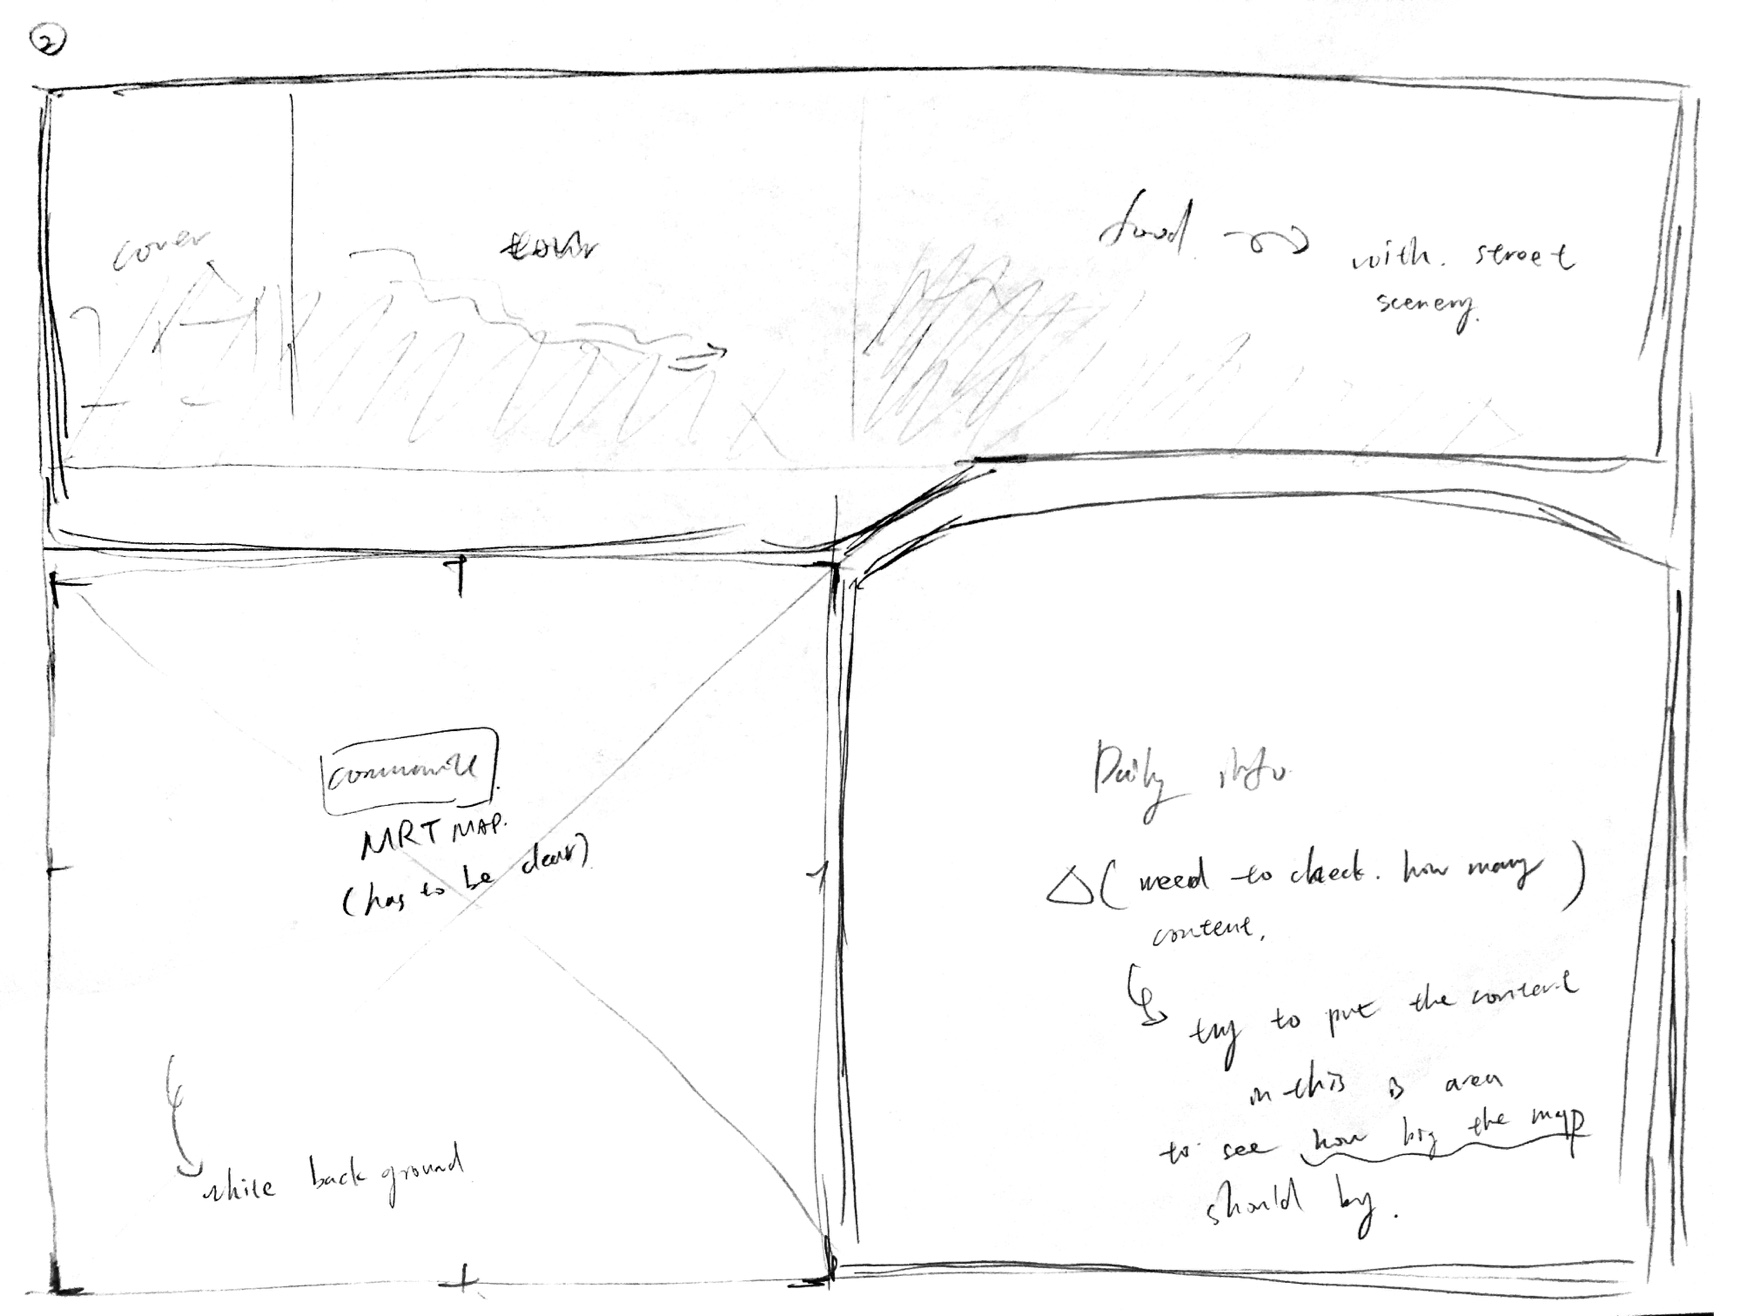 ②
cover
tour
food
with. street
scenery.
MRT MAP.
(has to be clear)
white back ground
Daily info
△( need to check. how many )
content,
try to put the content
in this is area
to see how big the map
should by.